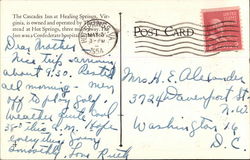 The Cascades Inn at Healing Springs, Virginia, is owned and operated by
at Hot Springs, three miles away. The
Inn was a Confederate hospital
POST CARD
Dear Mother
Nice trip - arriving
about 9.30. Rested
all morning - men
off to play golf.
Weather quite cool
Everything going
Smoothly. Love Ruth
Mrs. H. E. Alexander
3724 Davenport St.
N.W.
Washington 16
D.C.